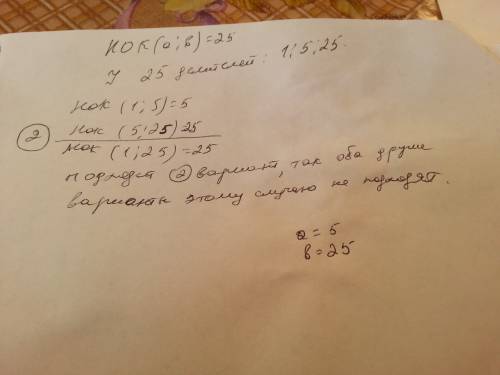 НОК(а;в)=25
У 25 делителей: 1;5;25.
НОК (1;5)=5
② НОК (5;25) 25
НОК (1;25)=25
подходит ② вариант, так оба другие
варианты этому случаю не подходят.
а=5
в=25